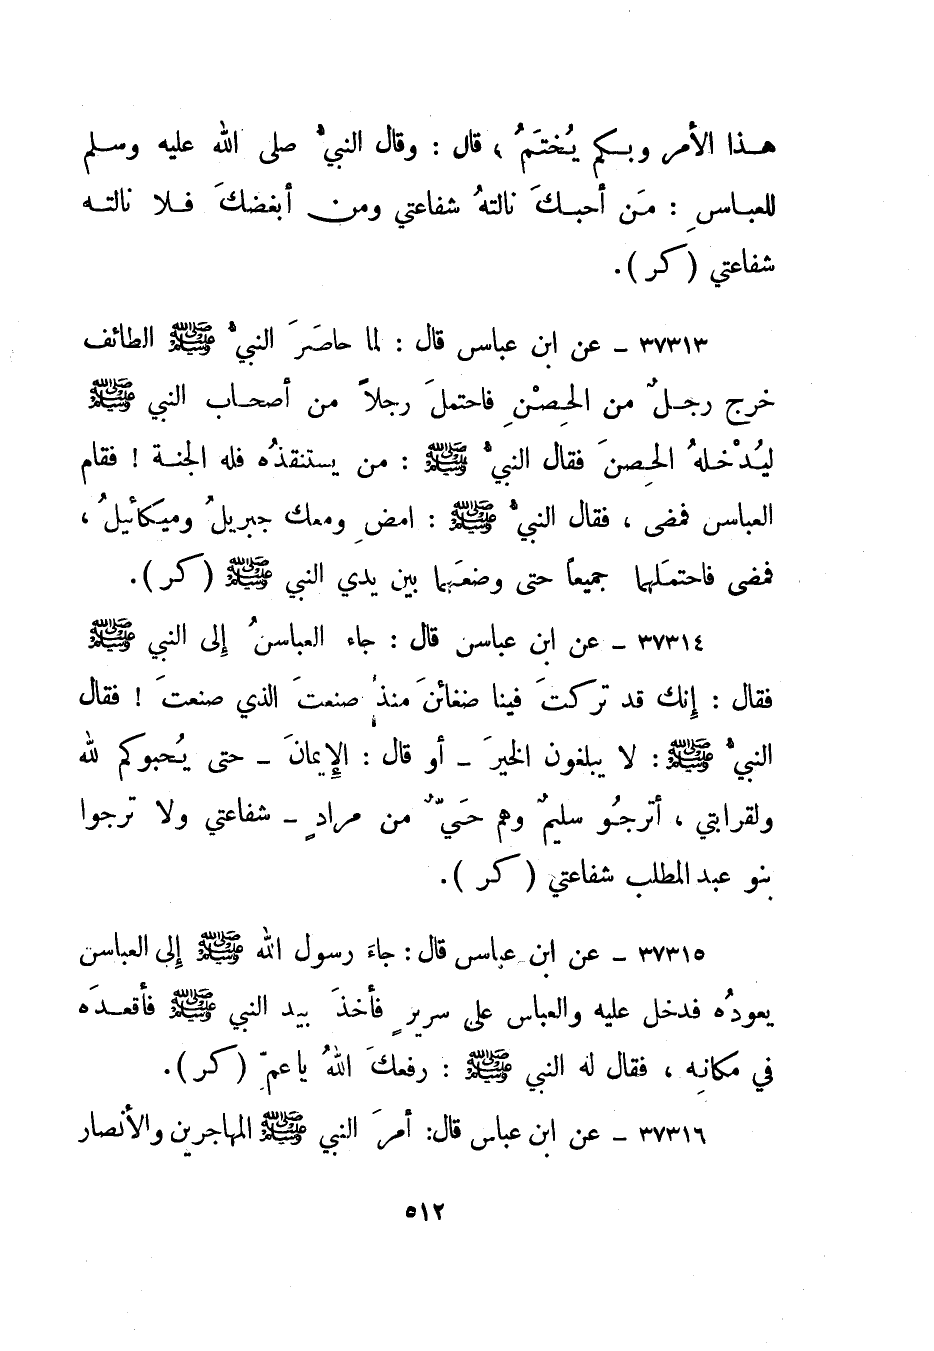 هـذا الأمر وبـكم يُختَمُ ، قال : وقال النبيُّ صلى الله عليه وسلم
للعباسِ : مَن أحبـكَ نالتهُ شفاعتي ومن أبغضكَ فـلا نالتـه
شفاعتي ( كر ) .
٣٧٣١٣ ـ عن ابن عباس قال : لما حاصَرَ النبيُّ ﷺ الطائف
خرج رجـلٌ من الحِصْنِ فاحتملَ رجلاً من أصحاب النبي ﷺ
ليُدْخلهُ الحِصنَ فقال النبيُّ ﷺ : من يستنقذُه فله الجنـة ! فقام
العباس فمضى ، فقال النبيُّ ﷺ : امضِ ومعك جبريلُ وميكائيلُ ،
فمضى فاحتمَلهما جميعاً حتى وضعَهما بين يدي النبي ﷺ ( كر ) .
٣٧٣١٤ ـ عن ابن عباس قال : جاء العباسُ إلى النبي ﷺ
فقال : إنك قد تركتَ فينا ضغائنَ منذُ صنعتَ الذي صنعتَ ! فقال
النبيُّ ﷺ : لا يبلغون الخيرَ ـ أو قال : الإيمانَ ـ حتى يُحبوكم لله
ولقرابتي ، أترجُو سليمٌ وهم حَيٌّ من مرادٍ ـ شفاعتي ولا ترجوا
بنو عبد المطلب شفاعتي ( كر ) .
٣٧٣١٥ ـ عن ابن عباس قال : جاءَ رسول الله ﷺ إلى العباس
يعودُه فدخل عليه والعباس على سريرٍ فأخذَ بيد النبي ﷺ فأقعـدَه
في مكانِه ، فقال له النبي ﷺ : رفعكَ اللهُ يا عمِّ ( كر ) .
٣٧٣١٦ ـ عن ابن عباس قال : أمرَ النبي ﷺ المهاجرين والأنصار
٥١٢